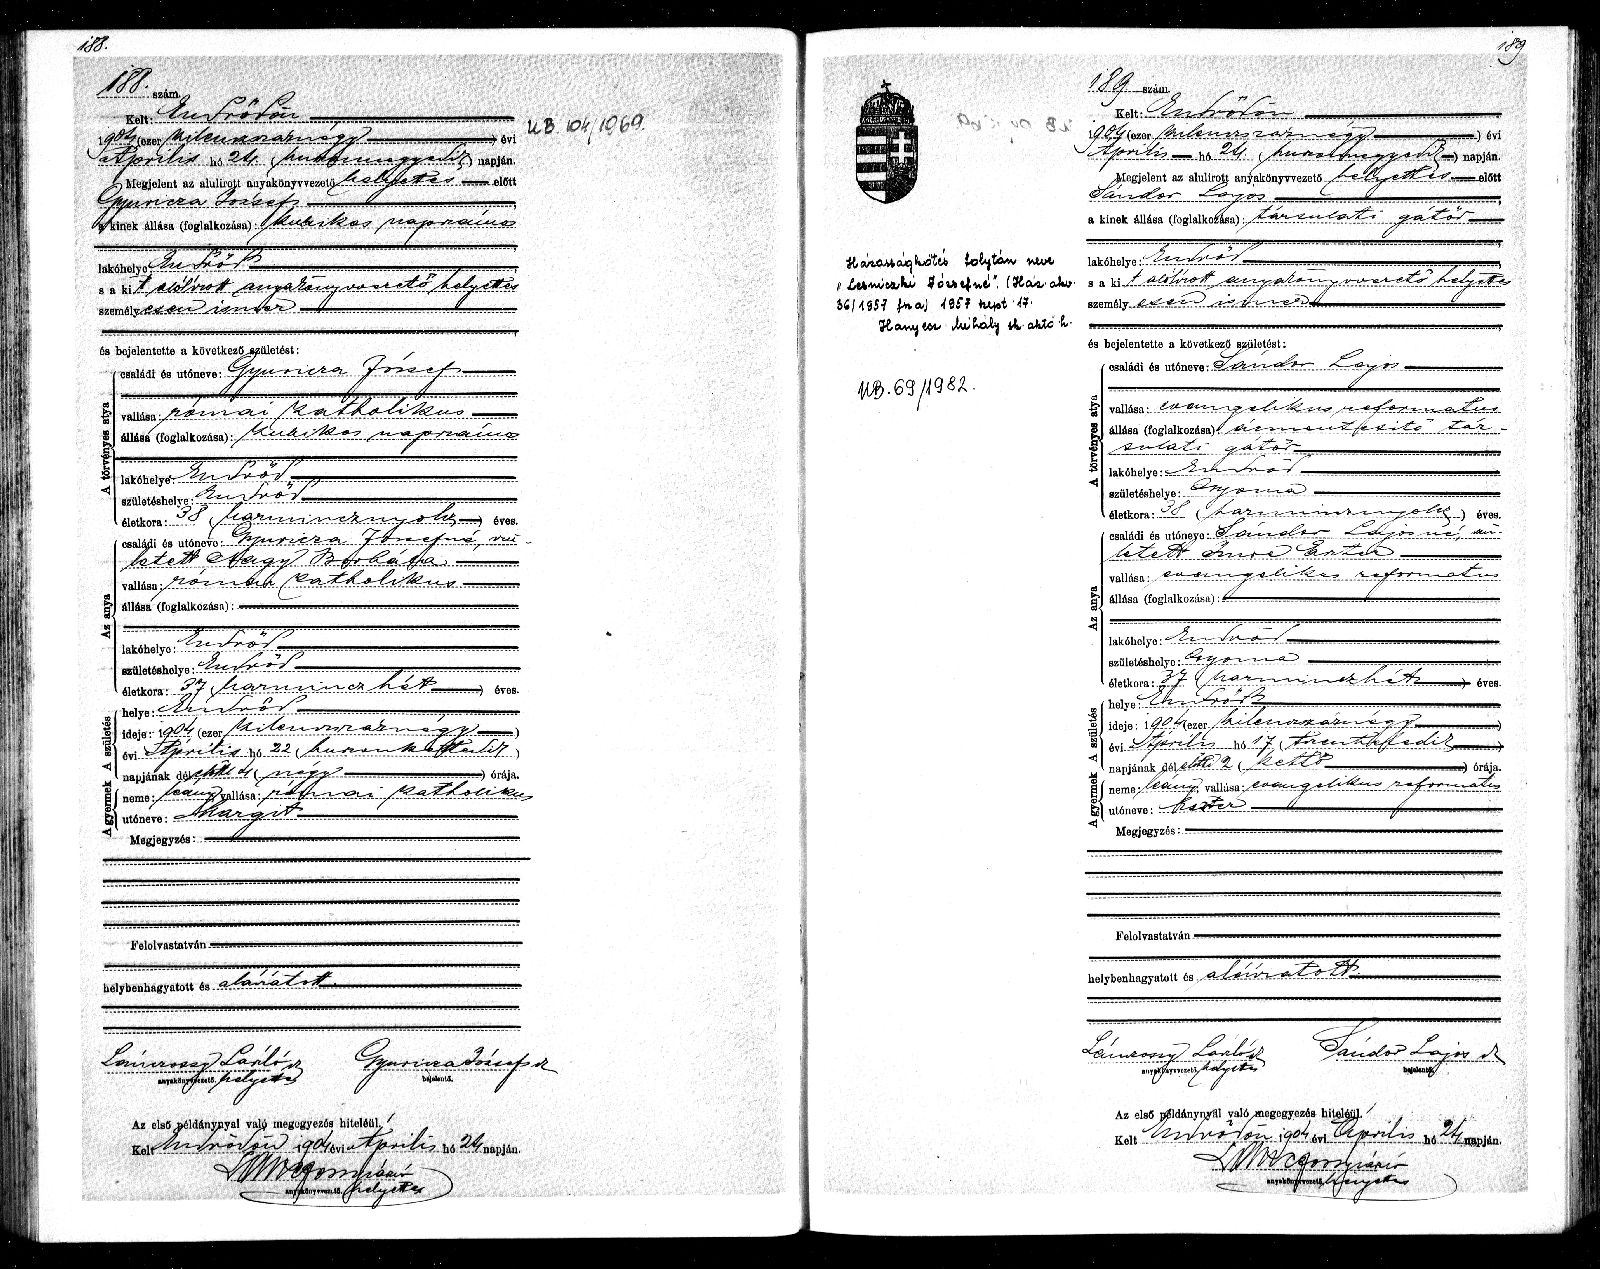 188.
188. szám.
Kelt: Endrődön
UB. 104/1969.
1904 (ezer kilenczszáznégy) évi
Április hó 24. (huszonnegyedik) napján.
Megjelent az alulirott anyakönyvvezető helyettes előtt
Gyuricza József
a kinek állása (foglalkozása): kurikos napszámos
lakóhelye: Endrőd
s a kit alólírott anyakönyvvezető helyettes
személyesen ismer
és bejelentette a következő születést:
A törvényes atya
családi és utóneve: Gyuricza József
vallása: római katholikus
állása (foglalkozása): kurikos napszámos
lakóhelye: Endrőd
születéshelye: Endrőd
életkora: 38 (harmincznyolcz) éves.
Az anya
családi és utóneve: Gyuricza Józsefné, szü-
letett Nagy Borbála
vallása: római katholikus
állása (foglalkozása):
lakóhelye: Endrőd
születéshelye: Endrőd
életkora: 37 (harminczhét) éves.
A születés
helye: Endrőd
ideje: 1904 (ezer kilenczszáznégy)
évi Április hó 22 (huszonkettedik)
napjának délelőtti 4 (négy) órája.
A gyermek
neme: leány; vallása: római katholikus
utóneve: Margit
Megjegyzés:
Felolvastatván
helybenhagyatott és aláíratott.
László
anyakönyvvezető helyettes
Gyuricza József sk
bejelentő.
Az első példánynyal való megegyezés hiteléül!
Kelt Endrődön 1904 évi Április hó 24 napján.
anyakönyvvezető helyettes
189
189 szám.
Kelt: Endrődön
1904 (ezer kilenczszáznégy) évi
Április hó 24. (huszonnegyedik) napján.
Megjelent az alulirott anyakönyvvezető helyettes előtt
Sándor Lajos
a kinek állása (foglalkozása): társulati gátőr
lakóhelye: Endrőd
s a kit alólírott anyakönyvvezető helyettes
személyesen ismer
Házasságkötés folytán neve
"Lesniczki Józsefné". (Ház. akv.
36/1957 fna) 1957 szept 17.
Hanyecz Mihály sk. aktó h.
UB. 69/1982.
és bejelentette a következő születést:
A törvényes atya
családi és utóneve: Sándor Lajos
vallása: evangelikus reformatus
állása (foglalkozása): ármentesitő tár-
sulati gátőr
lakóhelye: Endrőd
születéshelye: Gyoma
életkora: 38 (harmincznyolcz) éves.
Az anya
családi és utóneve: Sándor Lajosné, szü-
letett Imre Eszter
vallása: evangelikus reformatus
állása (foglalkozása):
lakóhelye: Endrőd
születéshelye: Gyoma
életkora: 37 (harminczhét) éves.
A születés
helye: Endrőd
ideje: 1904 (ezer kilenczszáznégy)
évi Április hó 17 (tizenhetedik)
napjának délelőtti 2 (kettő) órája.
A gyermek
neme: leány; vallása: evangelikus reformatus
utóneve: Eszter
Megjegyzés:
Felolvastatván
helybenhagyatott és aláíratott.
László
anyakönyvvezető helyettes
Sándor Lajos sk
bejelentő.
Az első példánynyal való megegyezés hiteléül!
Kelt Endrődön 1904 évi Április hó 24 napján.
anyakönyvvezető helyettes